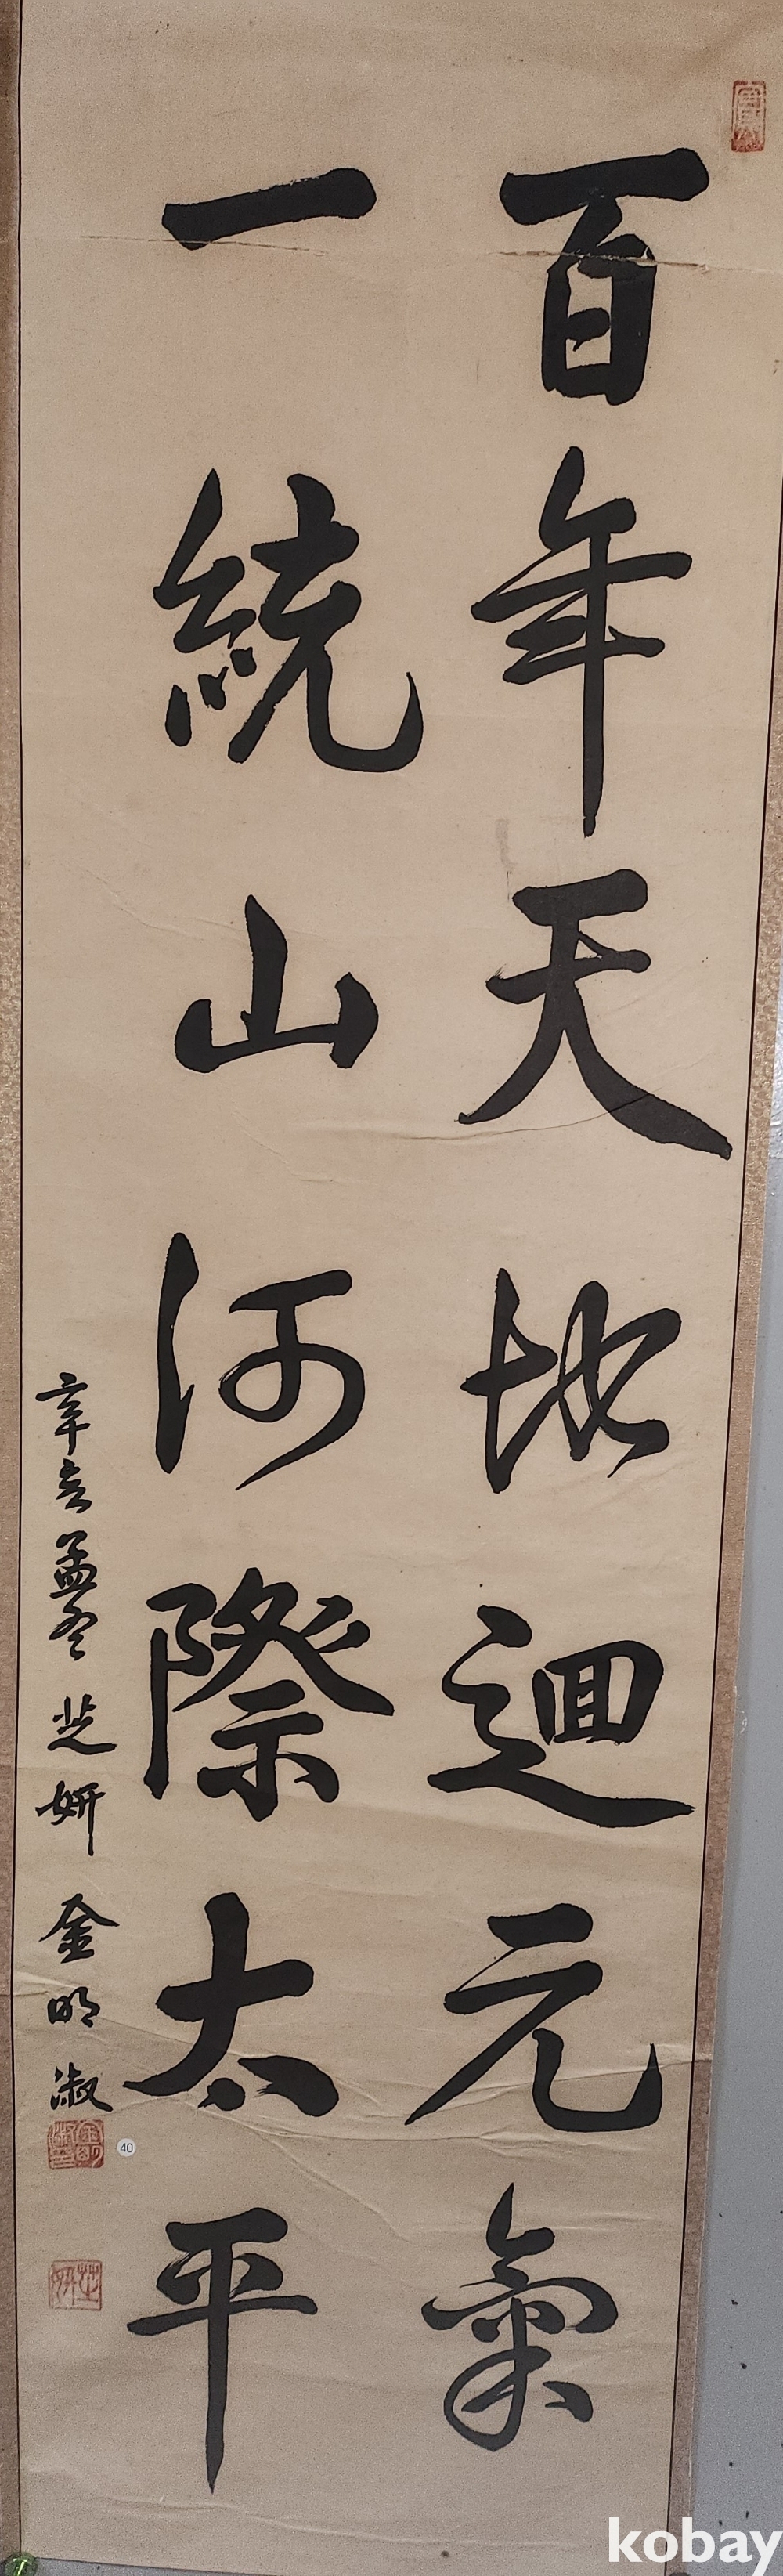 百年天地迴元氣
一統山河際太平
辛亥孟冬 芝妍 金明淑
40
kobay